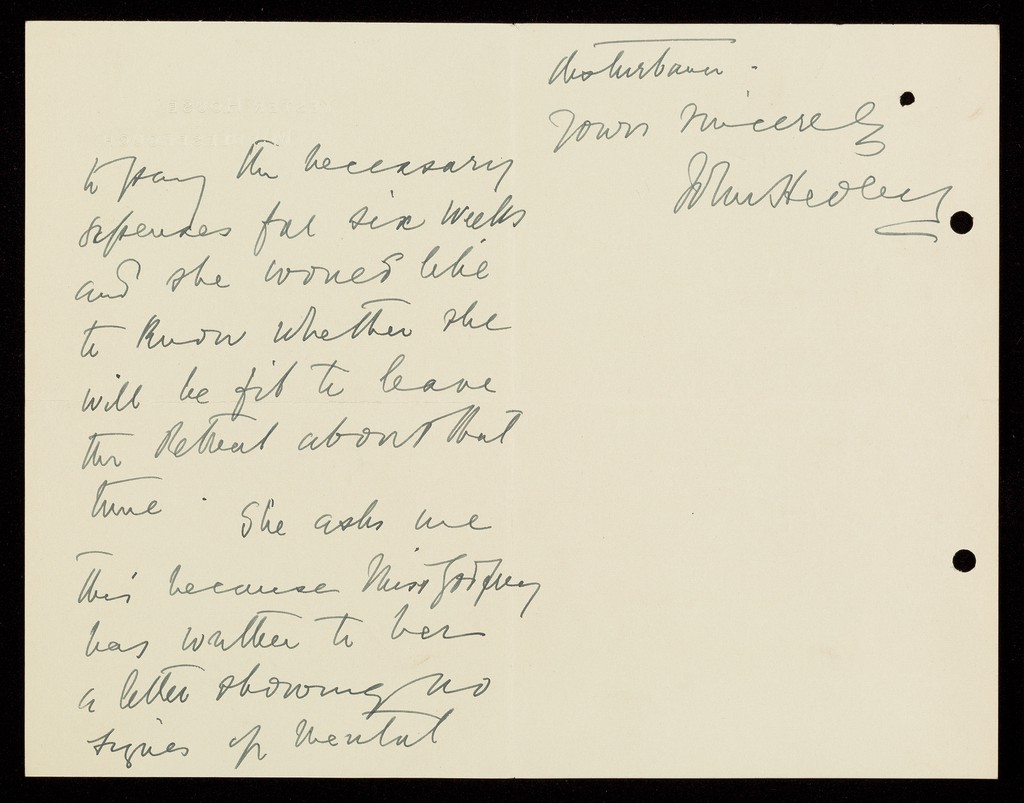 to pay the necessary
expenses for six weeks
and she would like
to know whether she
will be fit to leave
the Retreat about that
time. She asks me
this because Miss Godfrey
has written to her
a letter showing no
signes of mental
disturbance.
Yours sincerely
John Hedley